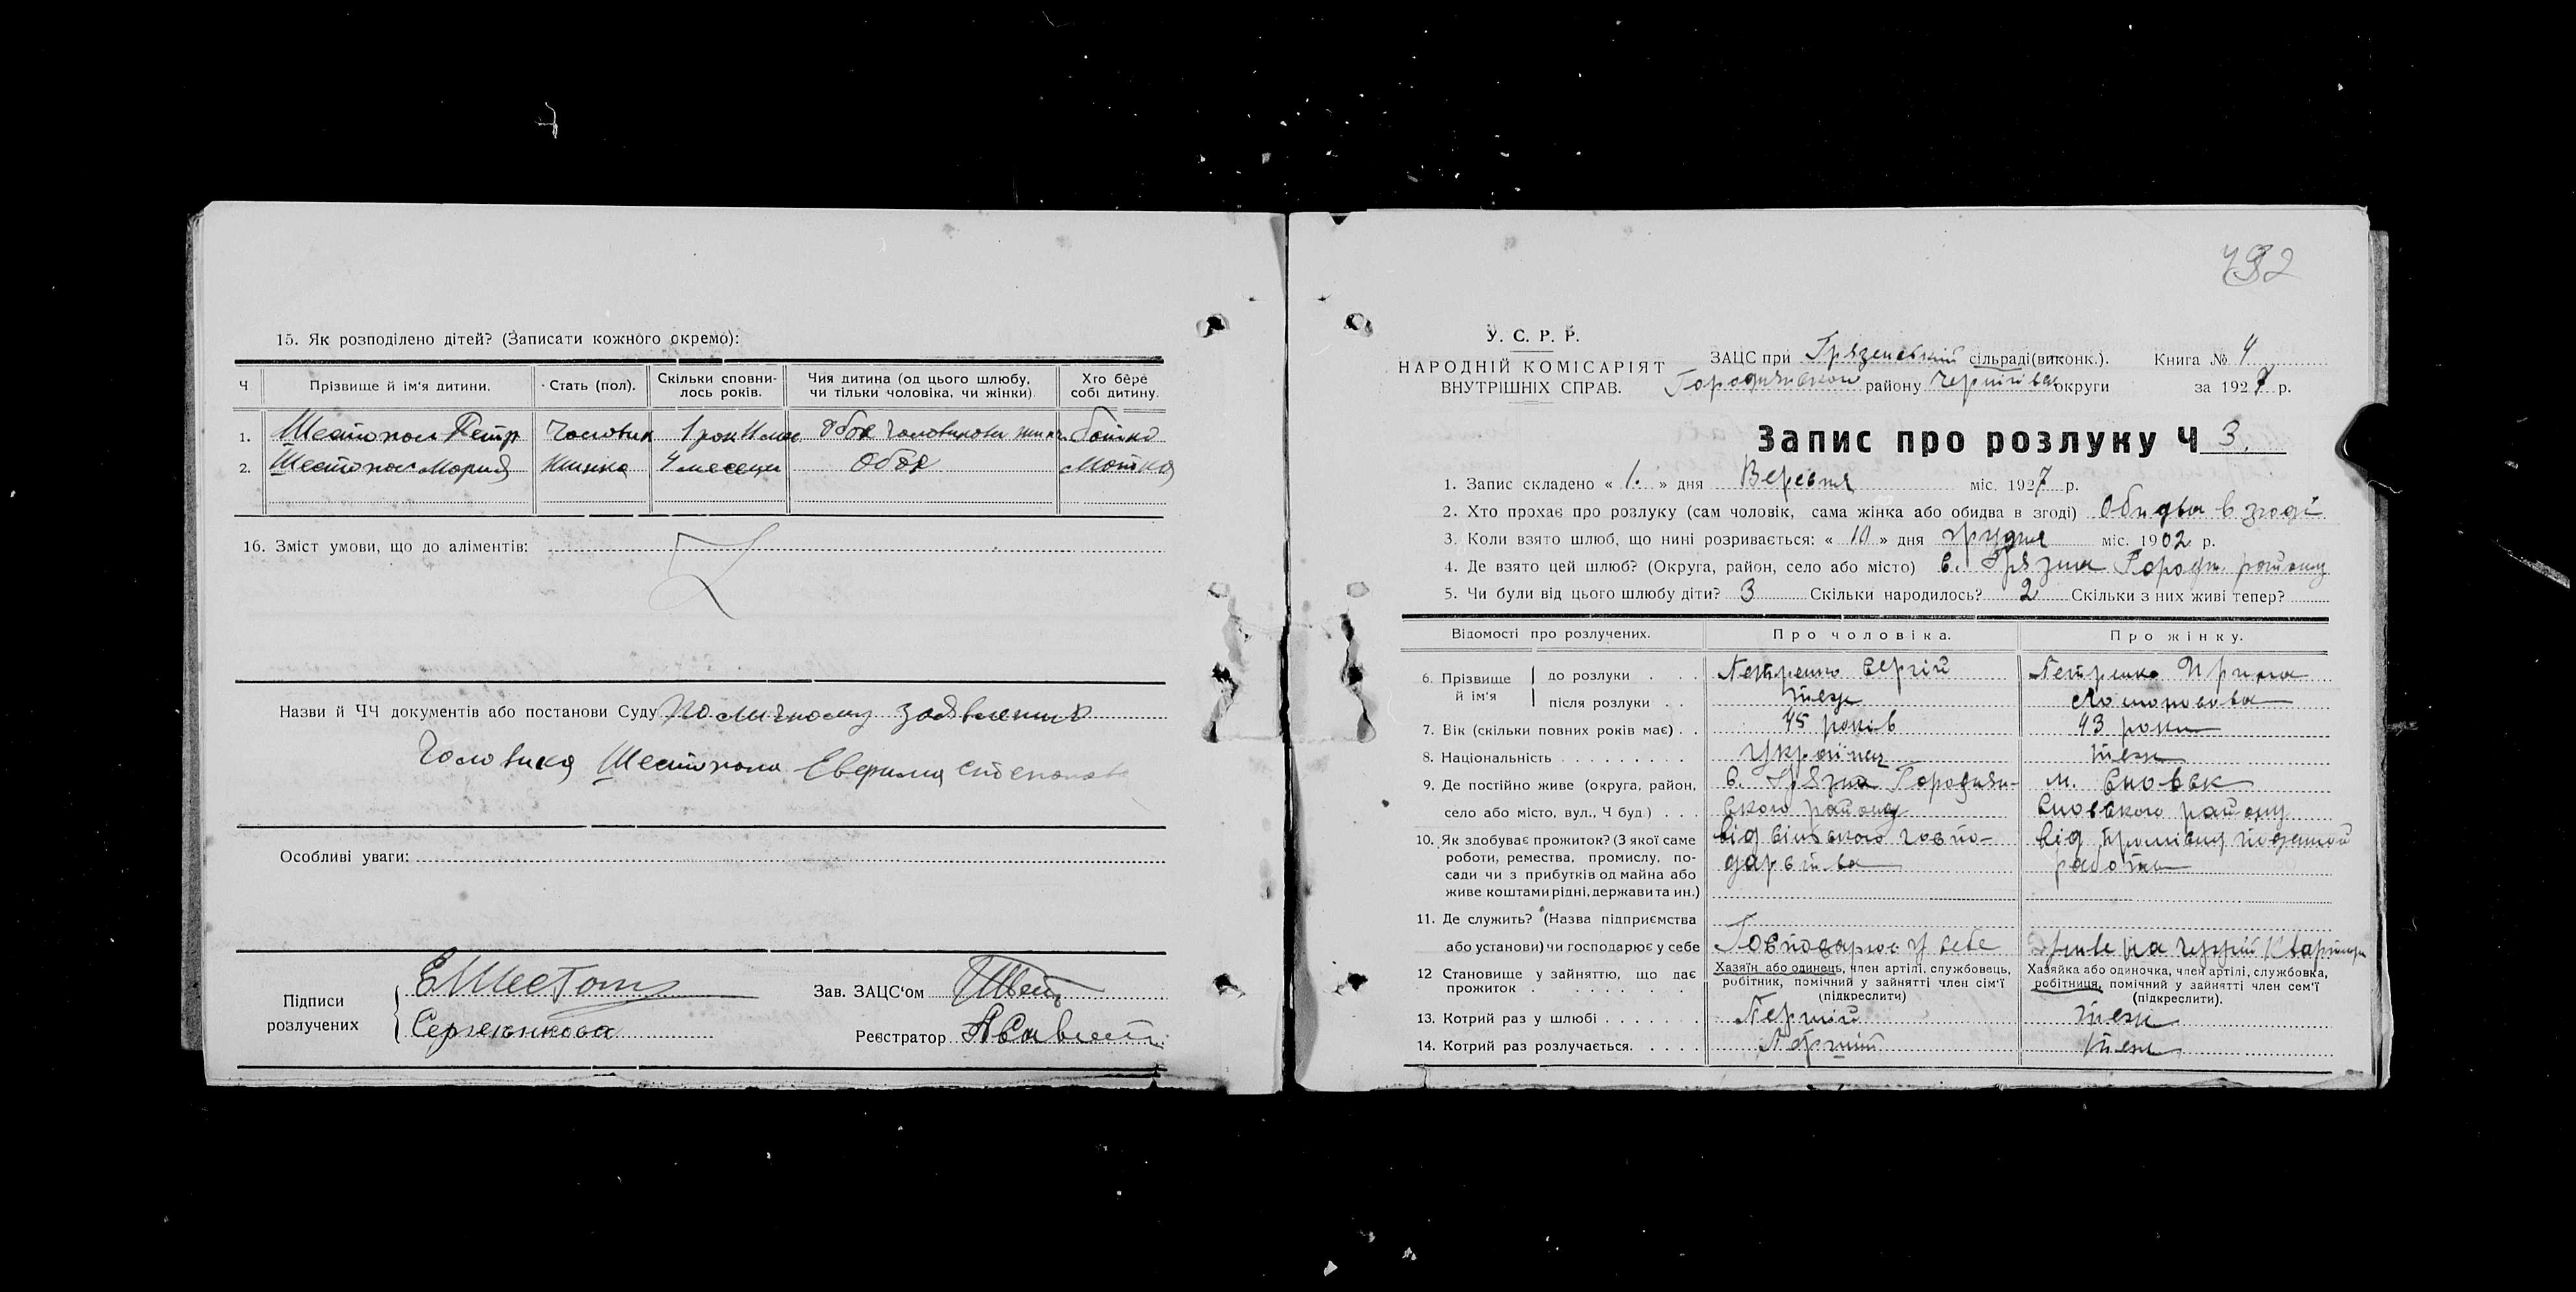 15. Як розподілено дітей? (Записати кожного окремо):
Ч Прізвище й ім'я дитини. Стать (пол). Скільки сповни- Чия дитина (од цього шлюбу, Хто бере
лось років. чи тільки чоловіка, чи жінки). собі дитину.
1. Шестопол Петр Чоловик 1 рок 11 мес обоя Батько
2. Шестопол Мария жинка 4 месеци обоя Матка
16. Зміст умови, що до аліментів:
Назви й ЧЧ документів або постанови Суду По личному заявлению
Чоловика Шестопола
Особливі уваги:
Підписи
розлучених
Зав. ЗАЦС'ом
Реєстратор
У. С. Р. Р.
НАРОДНІЙ КОМІСАРІЯТ
ВНУТРІШНІХ СПРАВ.
ЗАЦС при Грязенській сільраді (виконк.). Книга № 4
Городнянського району Чернігівськ округи за 1927 р.
Запис про розлуку Ч 3.
1. Запис складено « 1. » дня Вересня міс. 1927 р.
2. Хто прохає про розлуку (сам чоловік, сама жінка або обидва в згоді) Обидва в згоді
3. Коли взято шлюб, що нині розривається: « 10 » дня грудня міс. 1902 р.
4. Де взято цей шлюб? (Округа, район, село або місто) с. Грязна Городн. району
5. Чи були від цього шлюбу діти? 3 Скільки народилось? 2 Скільки з них живі тепер?
Відомості про розлучених. Про чоловіка. Про жінку.
6. Прізвище й ім'я до розлуки Петренко Сергій Петренко Ирина
після розлуки теж
7. Вік (скільки повних років має) 45 років 43 роки
8. Національність Українец теж
9. Де постійно живе (округа, район, с. Грязна Городнян- м. Сновськ
село або місто, вул., Ч буд.) ського району Сновського району
10. Як здобуває прожиток? (З якої саме від сільського госпо- від
роботи, ремества, промислу, по- дарства работи
сади чи з прибутків од майна або
живе коштами рідні, держави та ин.)
11. Де служить? (Назва підприємства
або установи) чи господарює у себе Господарює у себе живе на чужій квартири
12 Становище у зайняттю, що дає Хазяїн або одинець, член артілі, службовець, Хазяйка або одиночка, член артілі, службовка,
прожиток робітник, помічний у зайнятті член сім'ї робітниця, помічний у зайнятті член сем'ї
(підкреслити) (підкреслити).
13. Котрий раз у шлюбі Перший теж
14. Котрий раз розлучається. Перший теж